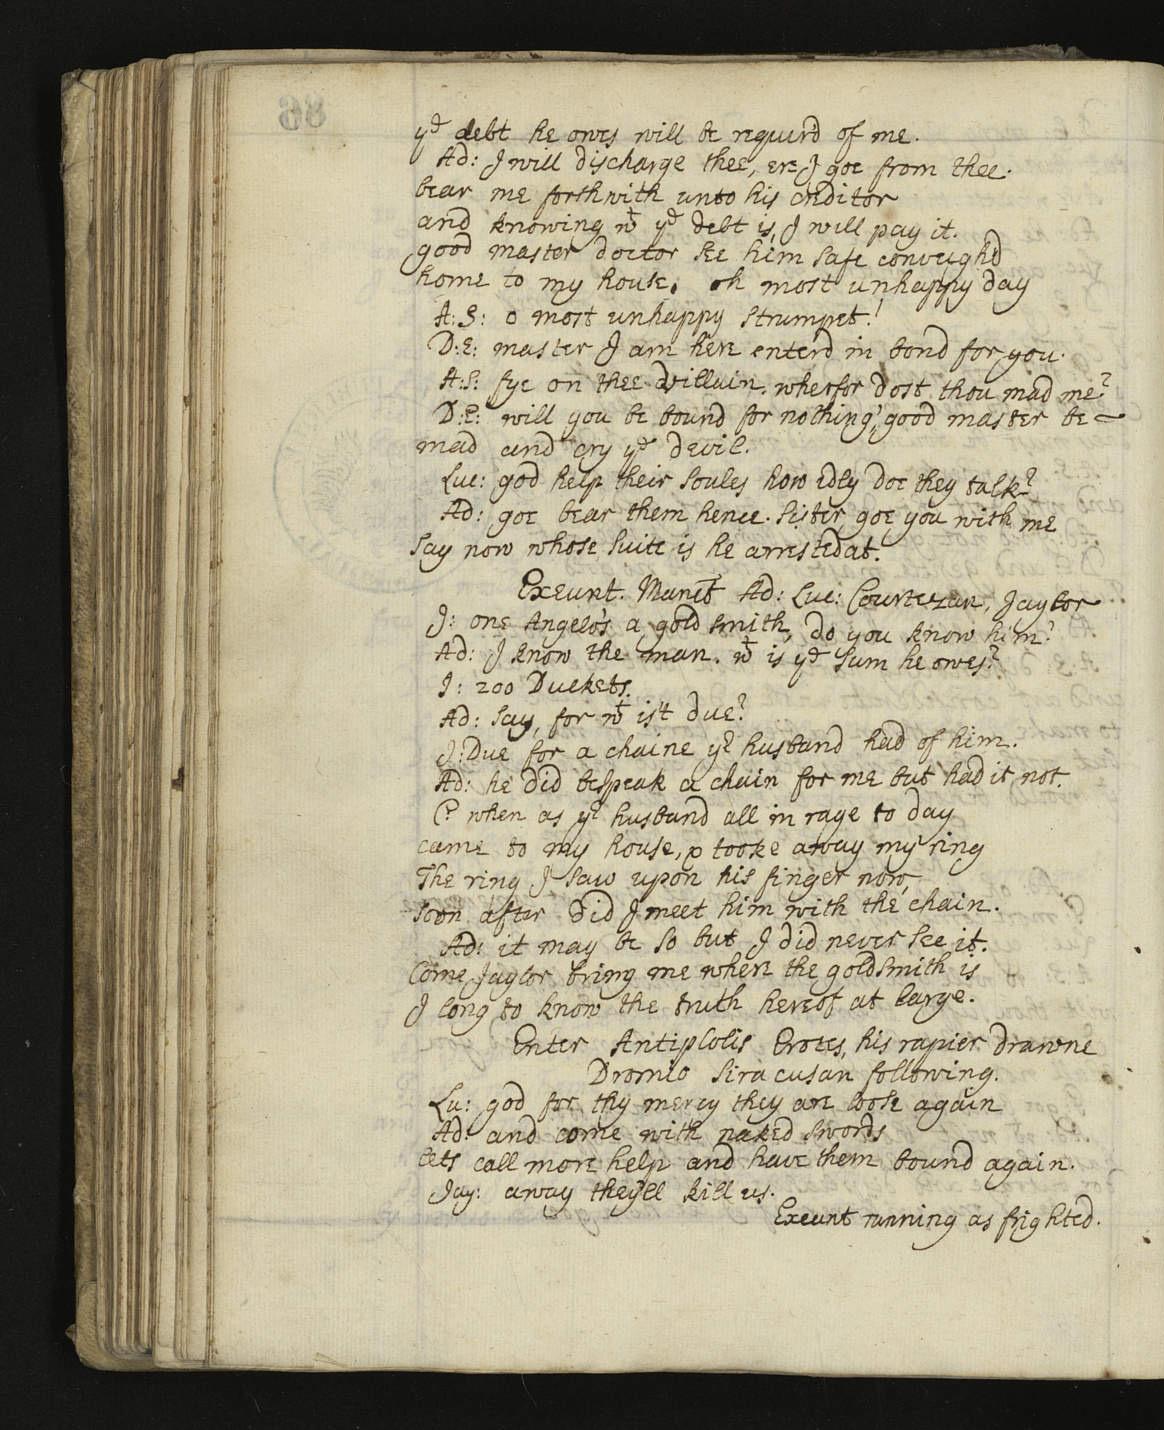 yᵉ debt he owes will be requir'd of me.
Ad: I will discharge thee, ere I goe from thee.
bear me forthwith unto his creditor
and knowing wᵗ yᵉ debt is, I will pay it.
good master doctor see him safe conveigh'd
home to my house. oh most unhappy day
A:S: o most unhappy strumpet!
D:E: master I am here enterd in bond for you.
A:S: fye on thee villain. wherfor dost thou mad me?
D:E: will you be bound for nothing, good master be
mad and cry yᵉ devil.
Luc: god help their soules how idly doe they talk?
Ad: goe bear them hence. sister goe you with me
say now whose suite is he arrested at.
Exeunt. Manet Ad: Luc: Courtezan, Jaylor
J: one Angelo's a goldsmith, do you know him?
Ad: I know the man. wᵗ is yᵉ sum he owes?
J: 200 Duckets.
Ad: say, for wᵗ is't due?
J: Due for a chaine yʳ husband had of him.
Ad: he did bespeak a chain for me but had it not.
C? when as yʳ husband all in rage to day
came to my house, & tooke away my ring
The ring I saw upon his finger now,
soon after did I meet him with the chain.
Ad: it may be so but I did never see it.
Come Jaylor bring me where the goldsmith is
I long to know the truth hereof at large.
Enter Antipholis Erotes, his rapier drawne
Dromio Siracusan following.
Lu: god for thy mercy they are loose again
Ad: and come with naked swords
lets call more help and have them bound again.
Jay: away they'll kill us.
Exeunt running as frighted.